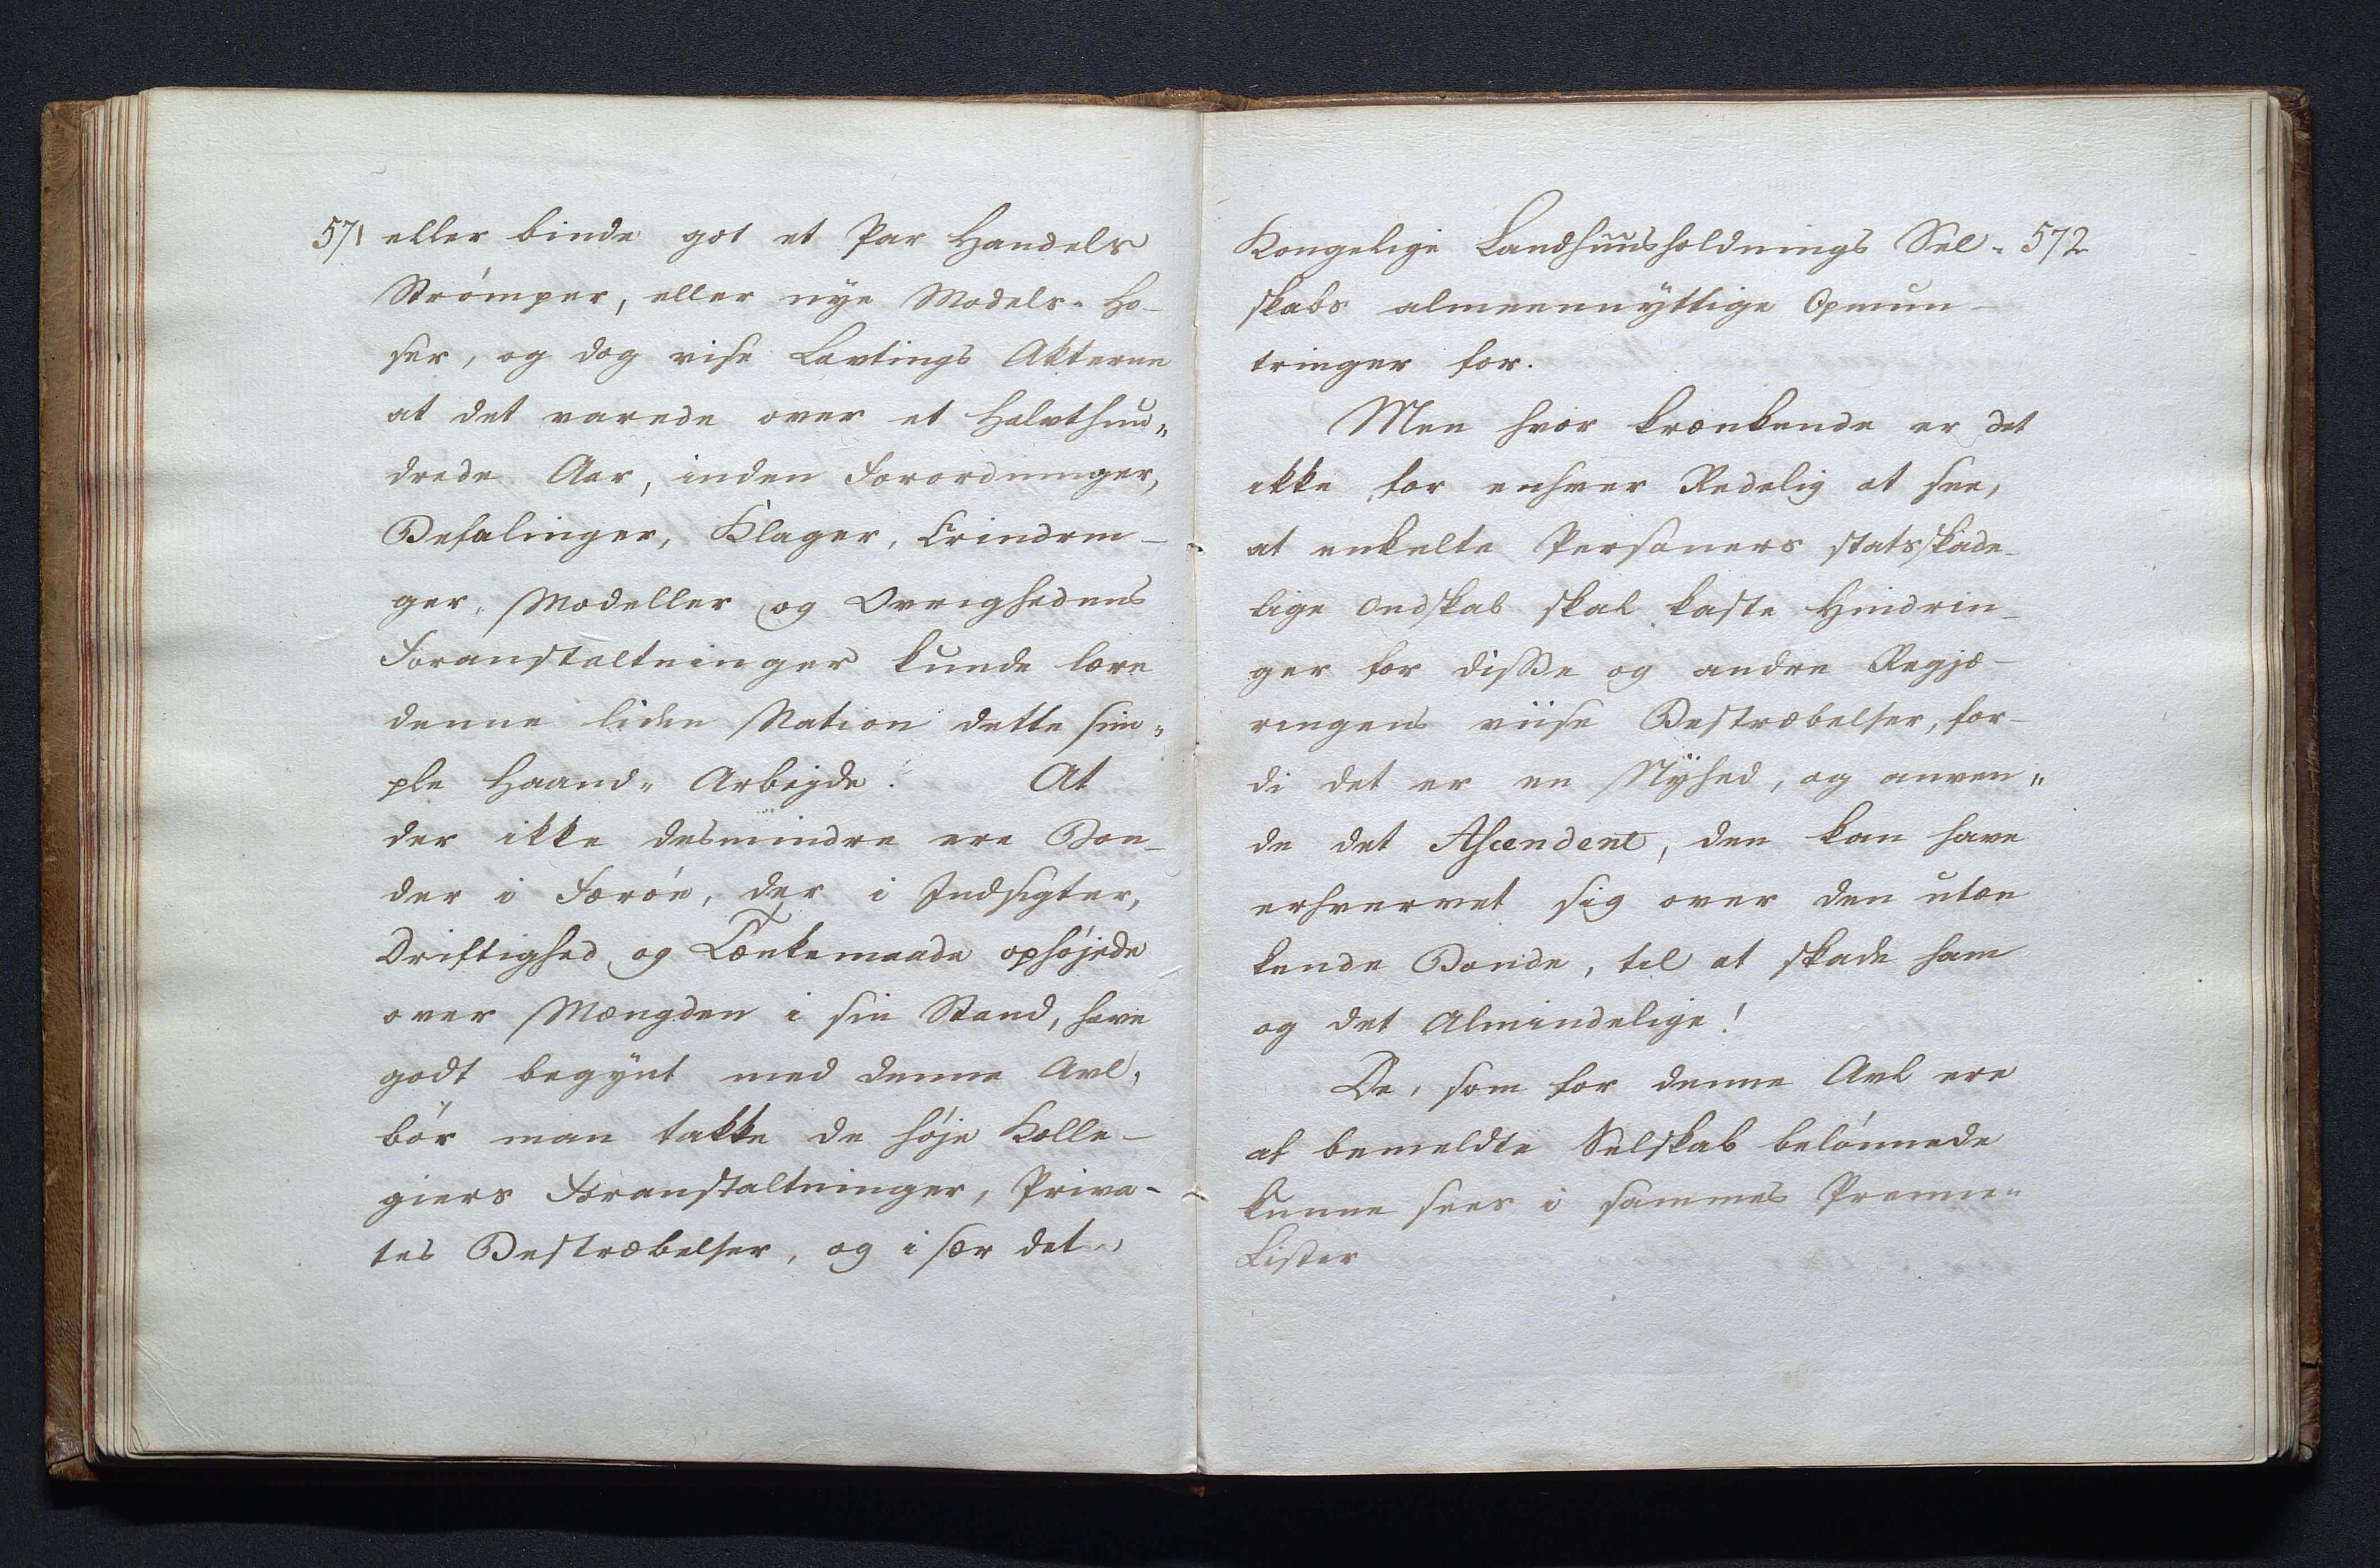 571 eller binde got et Par Handels
Strømper, eller nye Models-Ho-
ser, og dog vise Lavtings Akterne
at det varede over et Halvthun„
drede Aar, inden Forordninger,
Befalinger, Klager, Erindrin-
ger, Modeller og Øvrighedens
Foranstaltninger kunde lære
denne liden Nation dette sim„
ple Haand„ Arbeyde. At
der ikke desmindre ere Bøn-
der i Færøe, der i Indsigter,
Driftighed og Tænkemaade ophøjede
over Mængden i sin Stand, have
godt begynt med denne Avl,
bør man takke de høje Kolle-
giers Foranstaltninger, Priva-
tes Bestræbelser, og i sær det
Kongelige Landhuusholdnings Sel- 572
skabs almeennyttige Opmun-
tringer for.
Men hvor krænkende er det
ikke for enhver Redelig at see,
at enkelte Personers statsskade-
lige Ondskab skal kaste Hindrin-
ger for disse og andre Regje-
ringens viise Bestræbelser, for-
di det er en Nyhed, og anven„
de det Ascendent, den kan have
erhvervet sig over den utæn
kende Bonde, til at skade ham
og det Almindelige!
De, som for denne Avl ere
af bemeldte Selskab belønnede
kunne sees i sammes Premie„
Lister